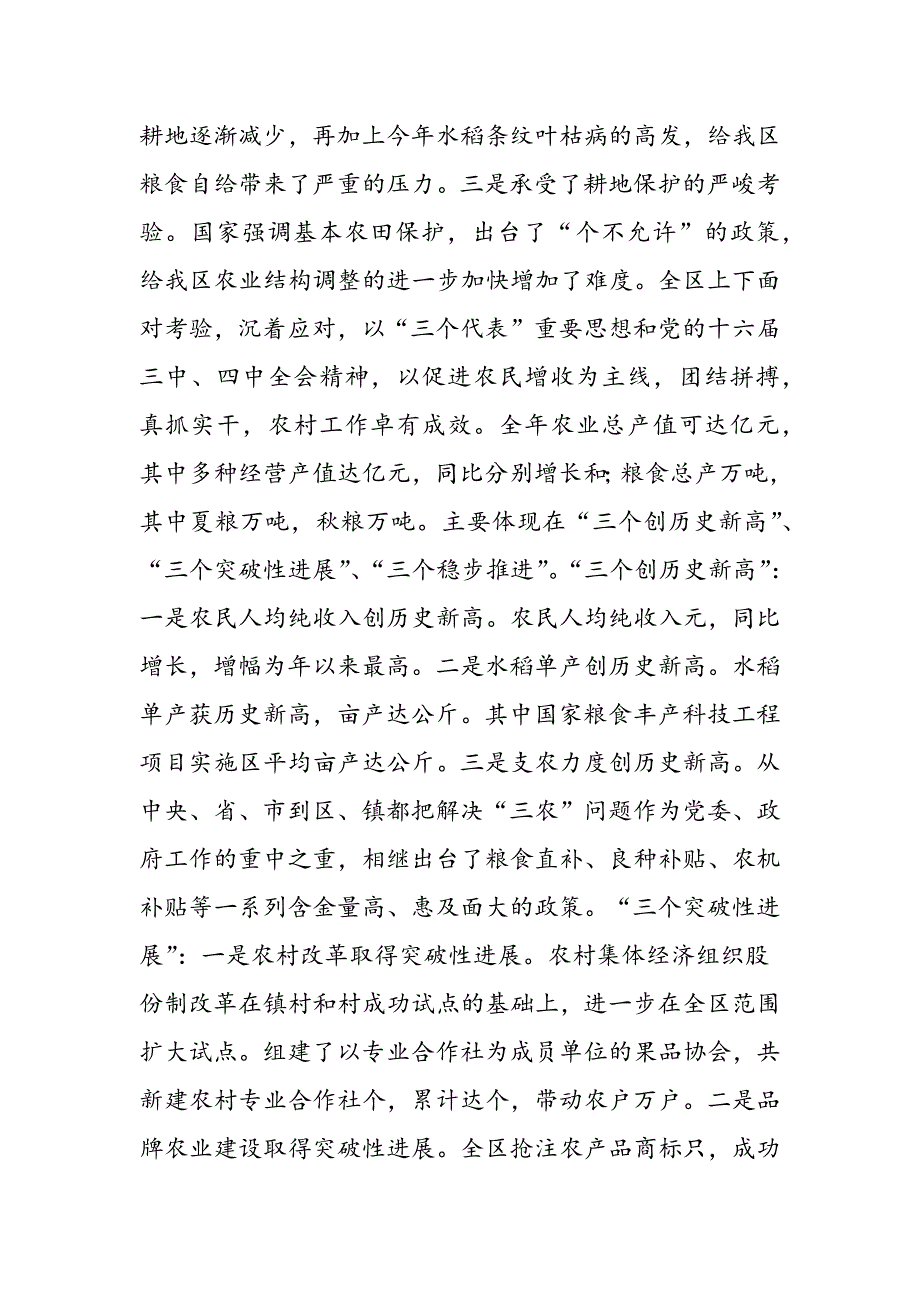 耕地逐渐减少，再加上今年水稻条纹叶枯病的高发，给我区
粮食自给带来了严重的压力。三是承受了耕地保护的严峻考
验。国家强调基本农田保护，出台了“个不允许”的政策，
给我区农业结构调整的进一步加快增加了难度。全区上下面
对考验，沉着应对，以“三个代表”重要思想和党的十六届
三中、四中全会精神，以促进农民增收为主线，团结拼搏，
真抓实干，农村工作卓有成效。全年农业总产值可达亿元，
其中多种经营产值达亿元，同比分别增长和；粮食总产万吨，
其中夏粮万吨，秋粮万吨。主要体现在“三个创历史新高”、
“三个突破性进展”、“三个稳步推进”。“三个创历史新高”：
一是农民人均纯收入创历史新高。农民人均纯收入元，同比
增长，增幅为年以来最高。二是水稻单产创历史新高。水稻
单产获历史新高，亩产达公斤。其中国家粮食丰产科技工程
项目实施区平均亩产达公斤。三是支农力度创历史新高。从
中央、省、市到区、镇都把解决“三农”问题作为党委、政
府工作的重中之重，相继出台了粮食直补、良种补贴、农机
补贴等一系列含金量高、惠及面大的政策。“三个突破性进
展”：一是农村改革取得突破性进展。农村集体经济组织股
份制改革在镇村和村成功试点的基础上，进一步在全区范围
扩大试点。组建了以专业合作社为成员单位的果品协会，共
新建农村专业合作社个，累计达个，带动农户万户。二是品
牌农业建设取得突破性进展。全区抢注农产品商标只，成功